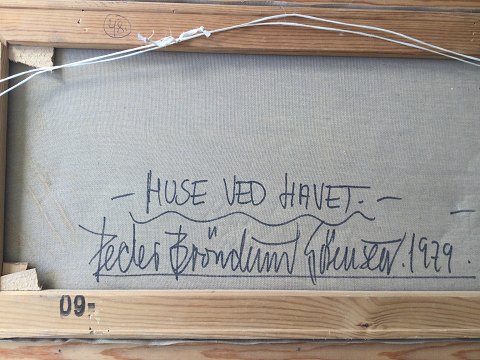 48
– HUSE VED HAVET. –
Peder Bröndum Sörensen. 1979.
09-